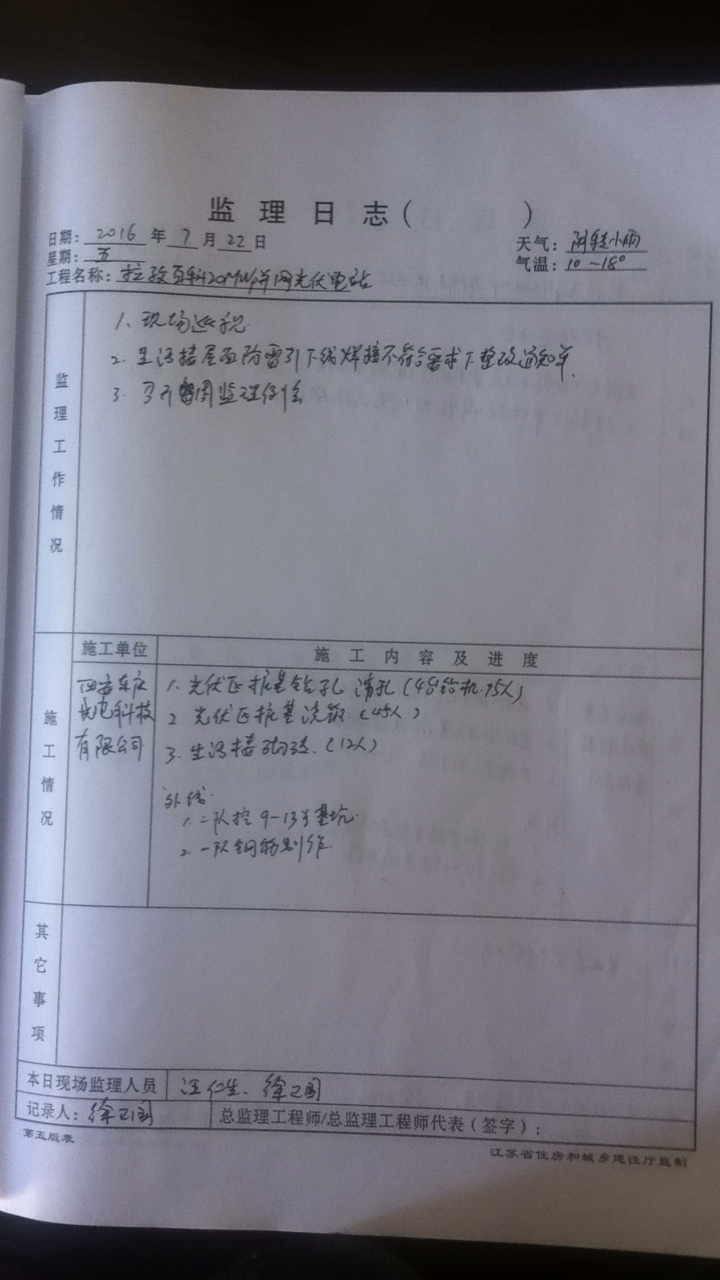 监理日志( )
日期: 2016 年 7 月 22 日
天气: 阴转小雨
星期: 五
气温: 10~18°
工程名称: 拉孜百科20MW并网光伏电站
监理工作情况
1、现场巡视
2. 生活楼屋面防雷引下线焊接不符合要求下整改通知单.
3. 召开 周监理例会
施工单位
施工内容及进度
施工情况
西安
光电科技
有限公司
1. 光伏区桩基钻孔 清孔(4台钻机.15人)
2 光伏区桩基浇筑.(45人)
3. 生活楼砌砖.(12人)
外线.
1. 二队挖9-13#基坑.
2. 一队钢筋制作
其它事项
本日现场监理人员
汪仁生、徐卫国
记录人: 徐卫国
总监理工程师/总监理工程师代表(签字):
第五版表
江苏省住房和城乡建设厅监制